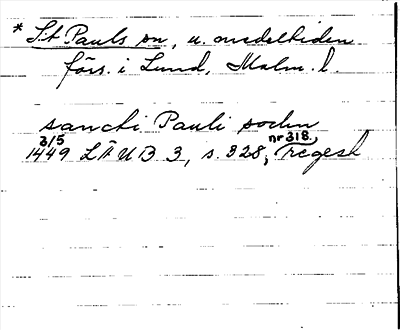 * S:t Pauls sn, u. medeltiden
förs. i Lund, Malm. l.
sancti Pauli sochn
3/5 nr 318.
1449 LÄUB 3, s. 328, regest